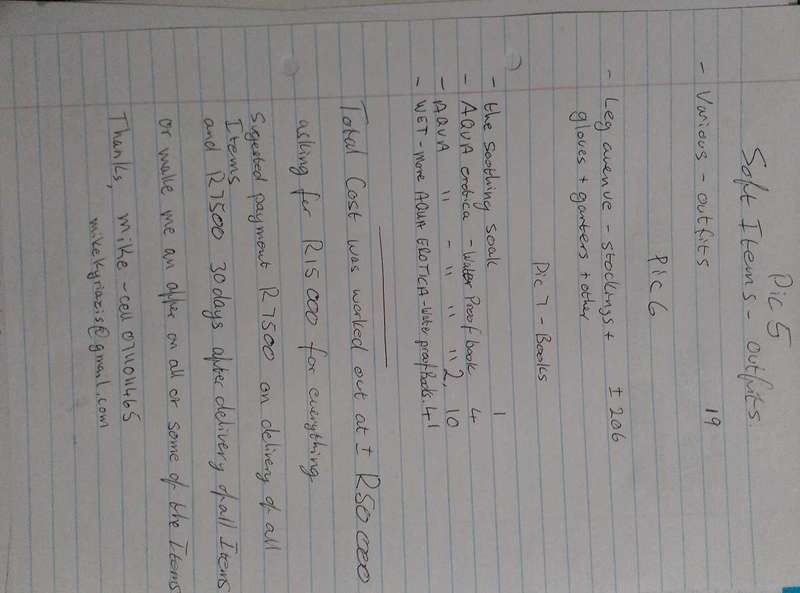 Pic 5
Soft Items - outfits.
- Various - outfits 19
Pic 6
- Leg avenue - stockings + ± 206
gloves + garters + other
Pic 7 - Books
- the soothing soak 1
- AQUA erotica - Water Proof book 4
- AQUA " - " " " 2, 10
- WET - more AQUA EROTICA - Water proof Book. 41
Total Cost was worked out at ± R50 000
asking for R15 000 for everything
Sugested payment R7500 on delivery of all
Items
and R7500 30 days after delivery of all Items
or make me an offer on all or some of the Items
Thanks, Mike - cell 0711011465
mikekyriazis@gmail.com